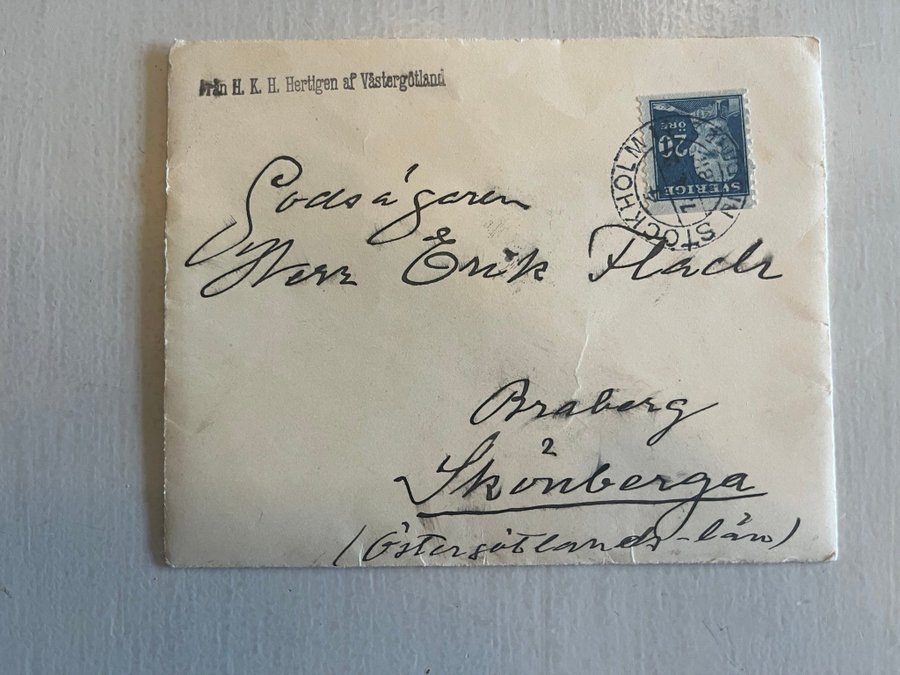 Från H. K. H. Hertigen af Västergötland
SVERIGE
20
ÖRE
STOCKHOLM
Godsägaren
Herr Erik Flach
Braberg
Skönberga
(Östergötlands-län)